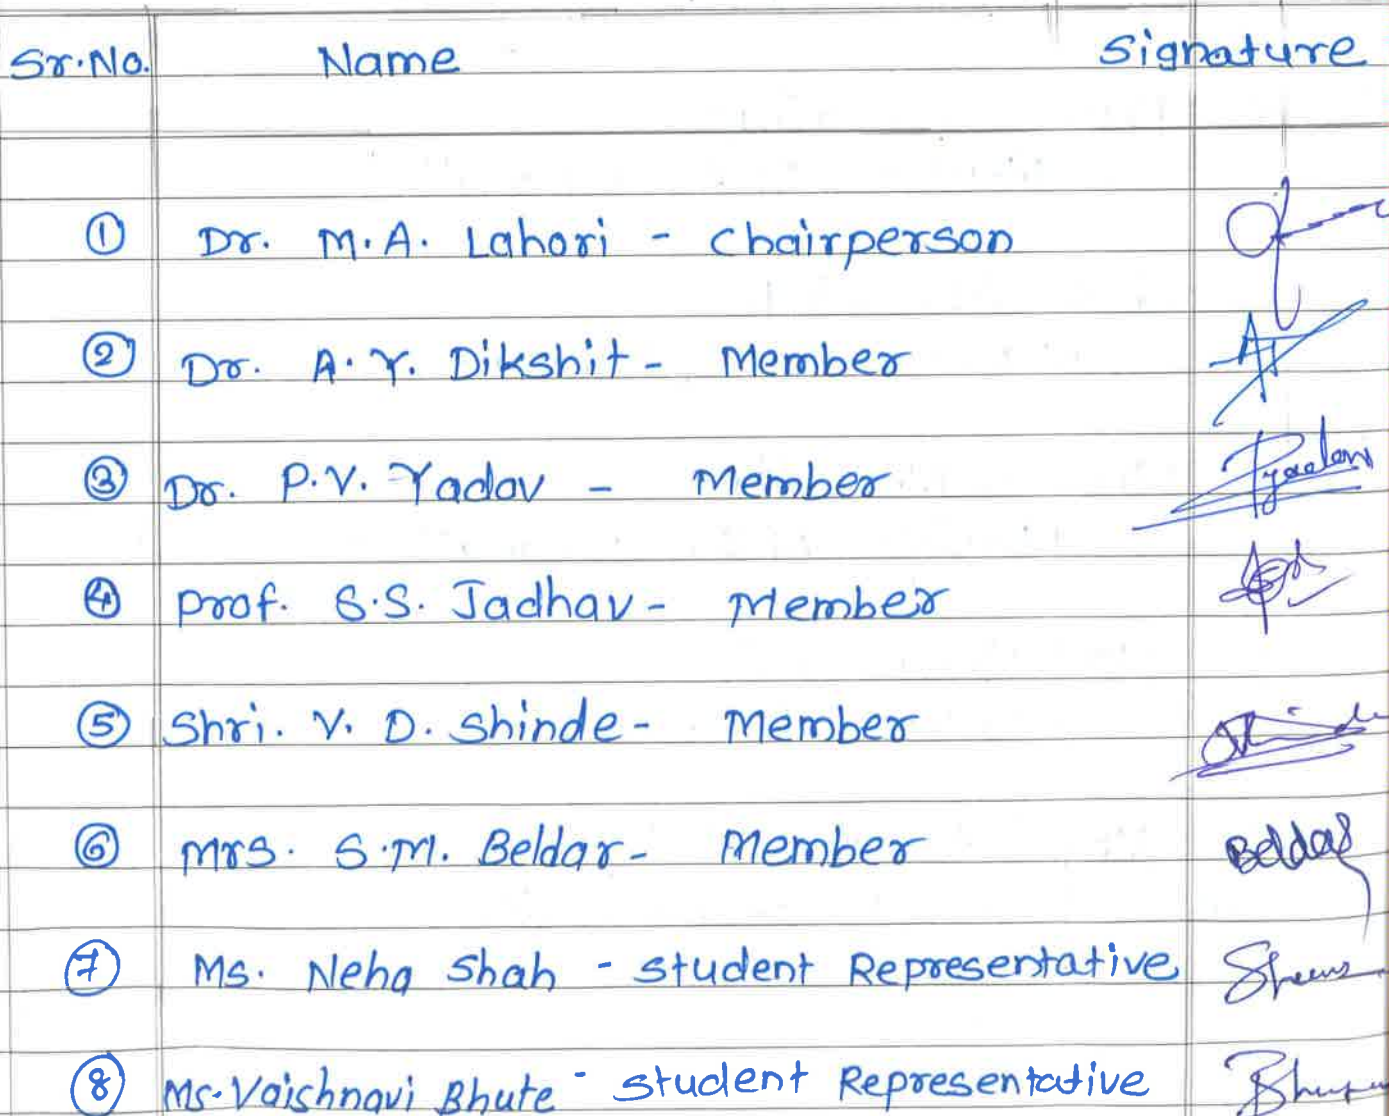 Sr.No. Name Signature
① Dr. M.A. Lahori - Chairperson
② Dr. A.Y. Dikshit - Member
③ Dr. P.V. Yadav - Member
④ Prof. S.S. Jadhav - Member
⑤ Shri. V. D. Shinde - Member
⑥ Mrs. S.M. Beldar - Member Beldar
⑦ Ms. Neha Shah - Student Representative
⑧ Ms. Vaishnavi Bhute - Student Representative